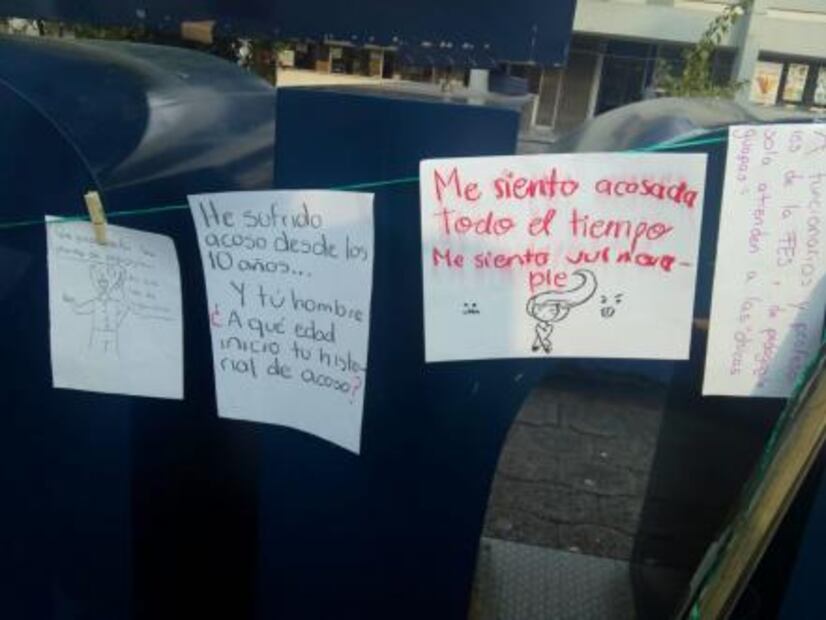 He sufrido
acoso desde los
10 años...
Y tú hombre
¿A qué edad
inicio tu histo-
rial de acoso?
Me siento acosada
Todo el tiempo
Me siento vulnera-
ple
A funcionarios y
de la FES, de pedagogía
solo atienden a las "chicas
guapas"